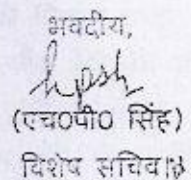 भवदीय,
(एच०पी० सिंह)
विशेष सचिव।